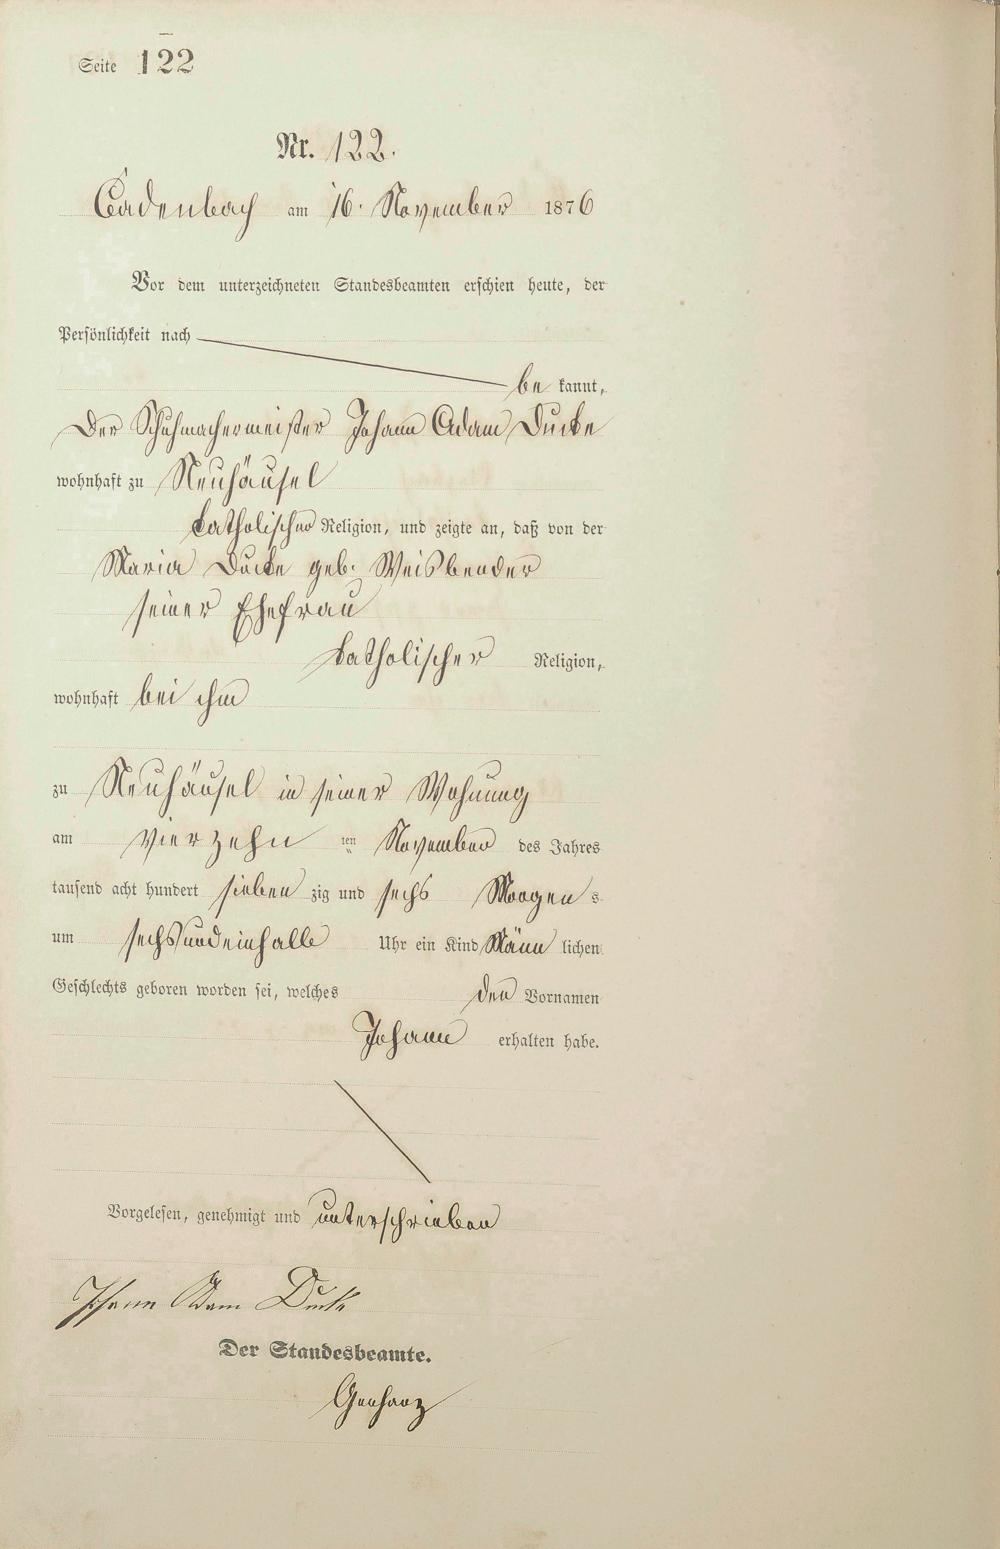 Seite 122
Nr. 122.
Cadenbach am 16. November 1876
Vor dem unterzeichneten Standesbeamten erschien heute, der
Persönlichkeit nach
be kannt,
Der Schuhmachermeister Johann Adam Ducke
wohnhaft zu Neuhäusel
katholischer Religion, und zeigte an, daß von der
Maria Ducke geb. Weisbender
seiner Ehefrau
katholischer Religion,
wohnhaft bei ihm
zu Neuhäusel in seiner Wohnung
am vierzehn ten November des Jahres
tausend acht hundert sieben zig und sechs Morgen s
um sechsundeinhalb Uhr ein Kind Männ lichen
Geschlechts geboren worden sei, welches den Vornamen
Johann erhalten habe.
Vorgelesen, genehmigt und unterschrieben
Johann Adam
Der Standesbeamte.